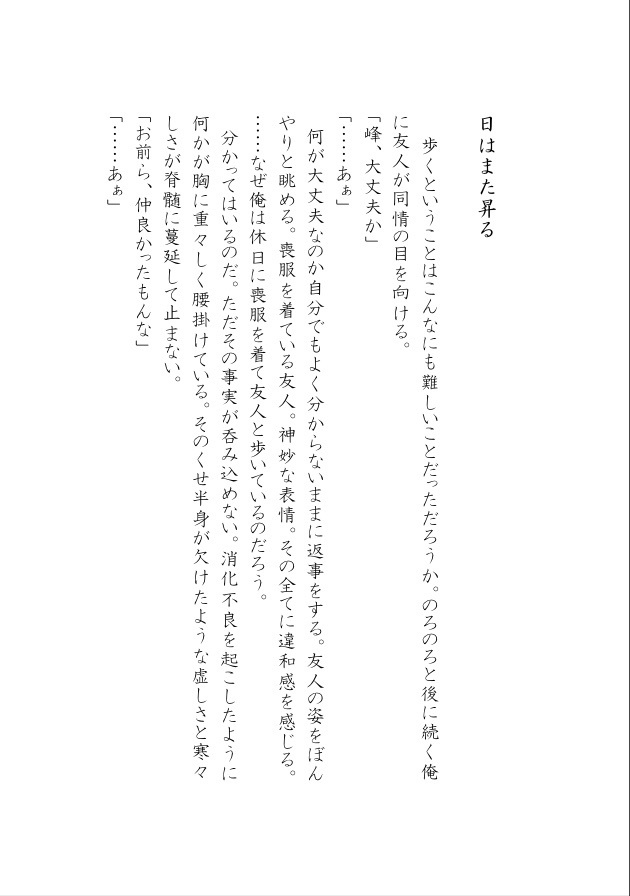 日はまた昇る
歩くということはこんなにも難しいことだっただろうか。のろのろと後に続く俺
に友人が同情の目を向ける。
「峰、大丈夫か」
「……あぁ」
何が大丈夫なのか自分でもよく分からないままに返事をする。友人の姿をぼん
やりと眺める。喪服を着ている友人。神妙な表情。その全てに違和感を感じる。
……なぜ俺は休日に喪服を着て友人と歩いているのだろう。
分かってはいるのだ。ただその事実が呑み込めない。消化不良を起こしたように
何かが胸に重々しく腰掛けている。そのくせ半身が欠けたような虚しさと寒々
しさが脊髄に蔓延して止まない。
「お前ら、仲良かったもんな」
「……あぁ」